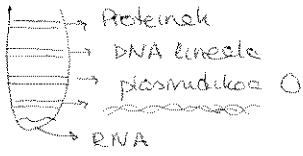 Proteinek
DNA lineala
plasmidikoa
RNA